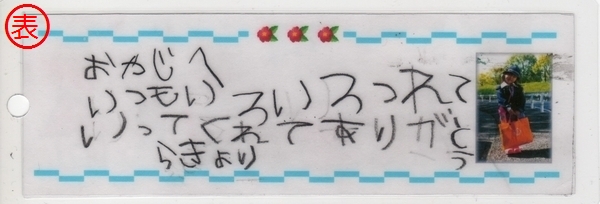 表
おやじへ
いつもいろいろつれて
いってくれてありがとう
らきょり